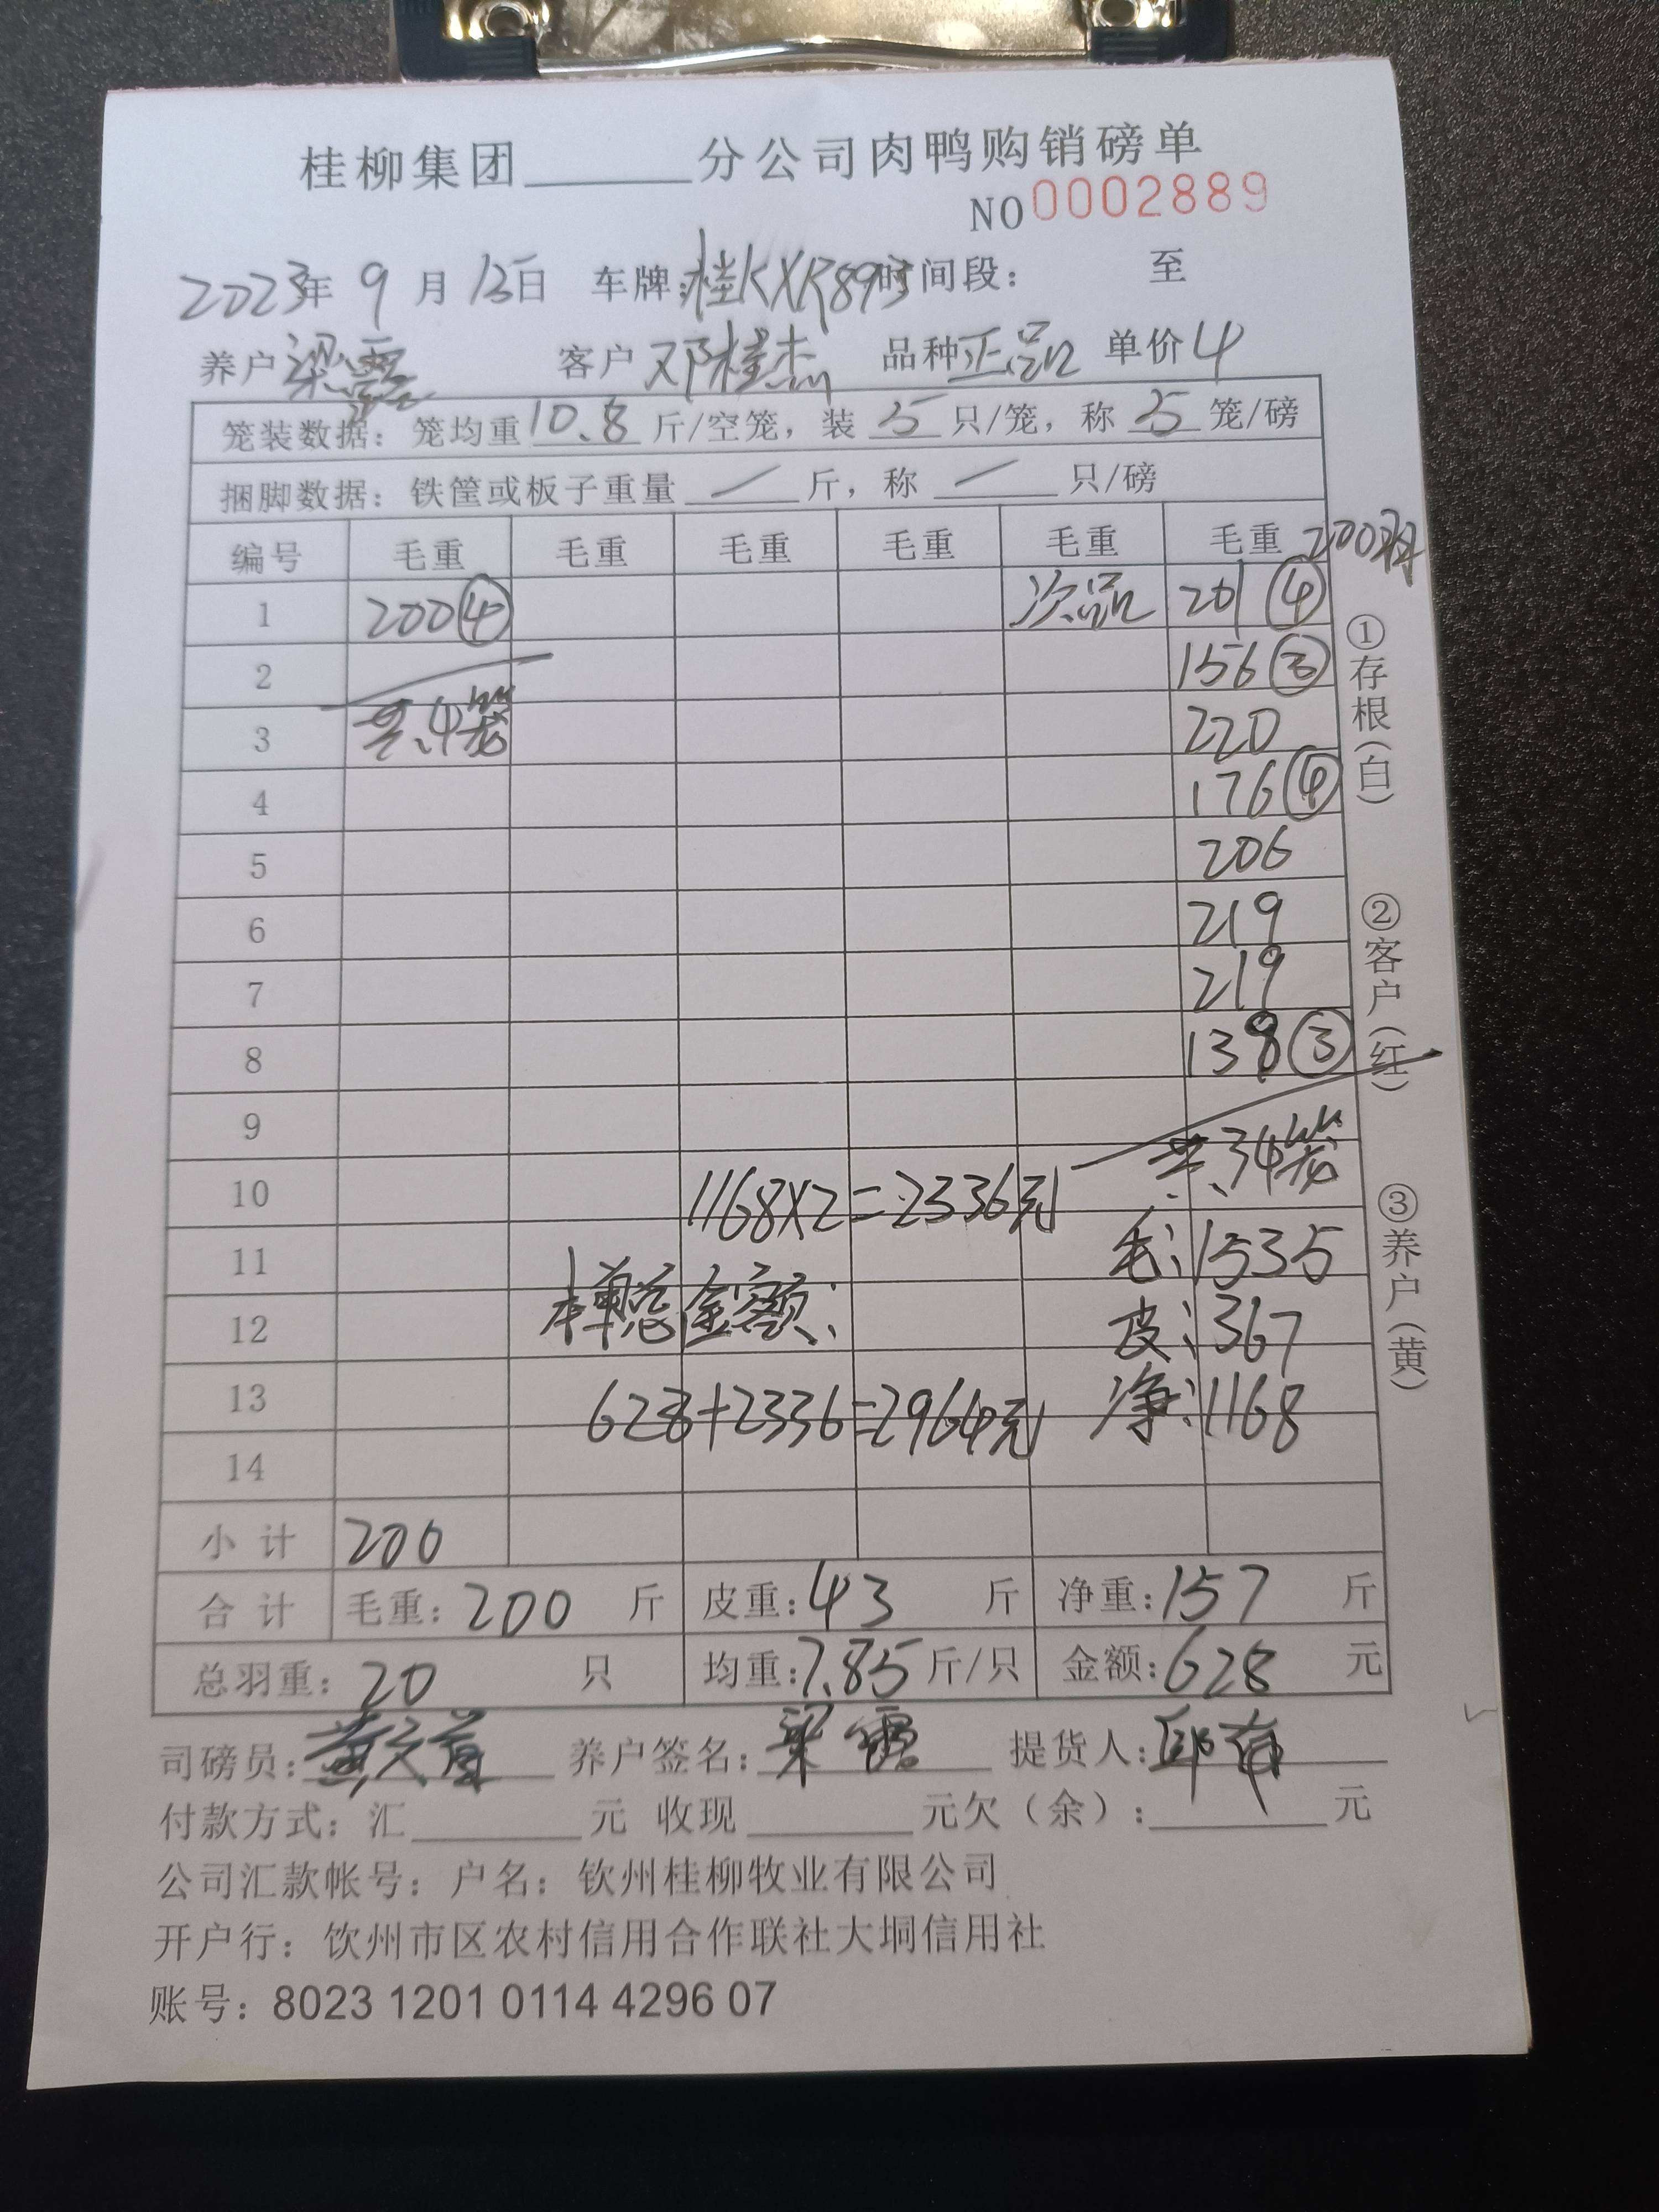 桂柳集团______分公司肉鸭购销磅单
NO 0002889
2023年 9 月 15日 车牌:桂KXR893 时间段: 至
养户 梁露 客户 邓桂杰 品种 正品 单价 4
笼装数据: 笼均重 10.8 斤/空笼, 装 5 只/笼, 称 5 笼/磅
捆脚数据: 铁筐或板子重量 / 斤, 称 / 只/磅
编号 毛重 毛重 毛重 毛重 毛重 毛重 200羽
1 200④ 次品 201④
2 156③
3 共4笼 220
4 176④
5 206
6 219
7 219
8 138③
9
共34笼
10 1168×2=2336元
11 毛:1535
12 本单总金额: 皮:367
13 628+2336=2964元 净:1168
14
小 计 200
合 计 毛重: 200 斤 皮重: 43 斤 净重: 157 斤
总羽重: 20 只 均重: 7.85 斤/只 金额: 628 元
司磅员: 养户签名: 梁露 提货人:
付款方式: 汇______元 收现______元欠（余）:______元
公司汇款帐号: 户名: 钦州桂柳牧业有限公司
开户行: 饮州市区农村信用合作联社大垌信用社
账号: 8023 1201 0114 4296 07
①存根(白)
②客户(红)
③养户(黄)